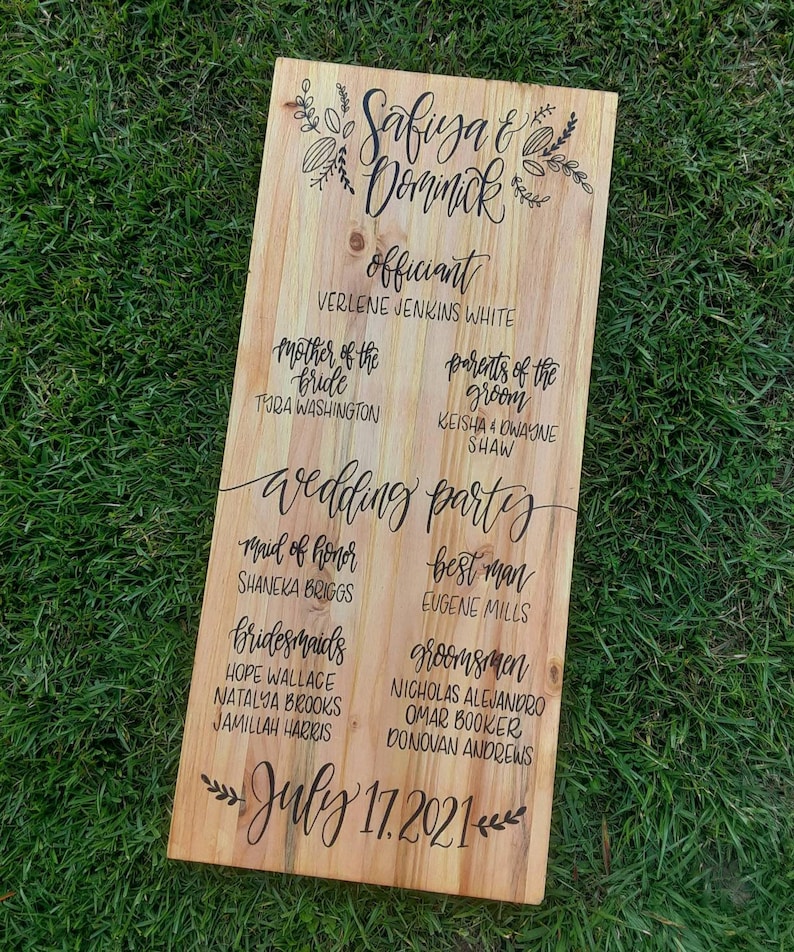 Safiya &
Dominick
officiant
VERLENE JENKINS WHITE
mother of the
bride
TYRA WASHINGTON
parents of the
groom
KEISHA & DWAYNE
SHAW
wedding party
maid of honor
SHANEKA BRIGGS
best man
EUGENE MILLS
bridesmaids
HOPE WALLACE
NATALYA BROOKS
JAMILLAH HARRIS
groomsmen
NICHOLAS ALEJANDRO
OMAR BOOKER
DONOVAN ANDREWS
July 17, 2021